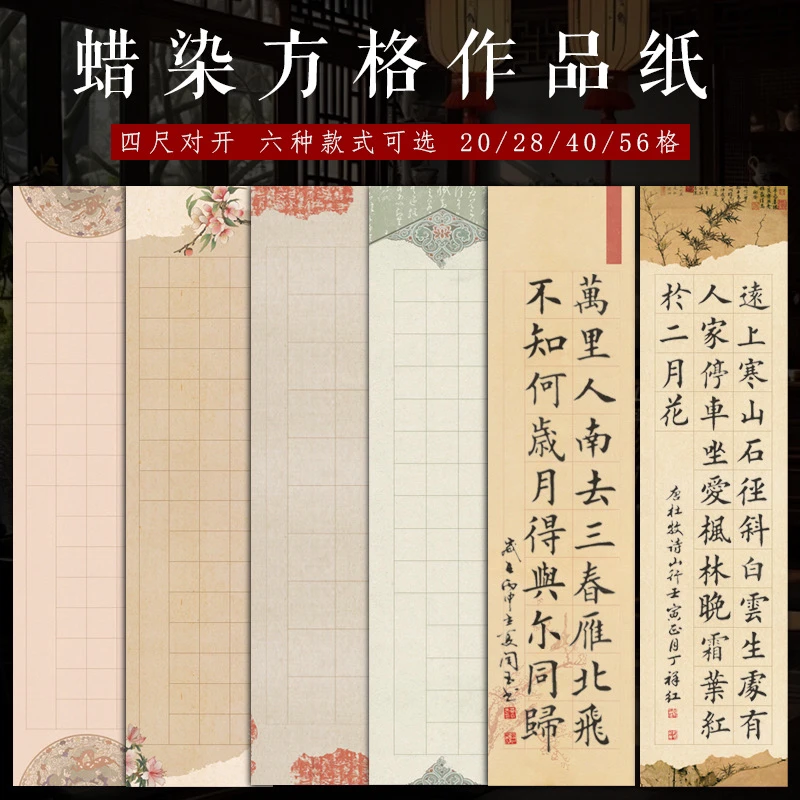 蜡染方格作品纸
四尺对开 六种款式可选 20/28/40/56格
萬里人南去三春雁北飛
不知何歳月得與尔同歸
丙申
遠上寒山石徑斜白雲生處有
人家停車坐愛楓林晚霜葉紅
於二月花
唐杜牧诗山行壬寅正月丁祥红